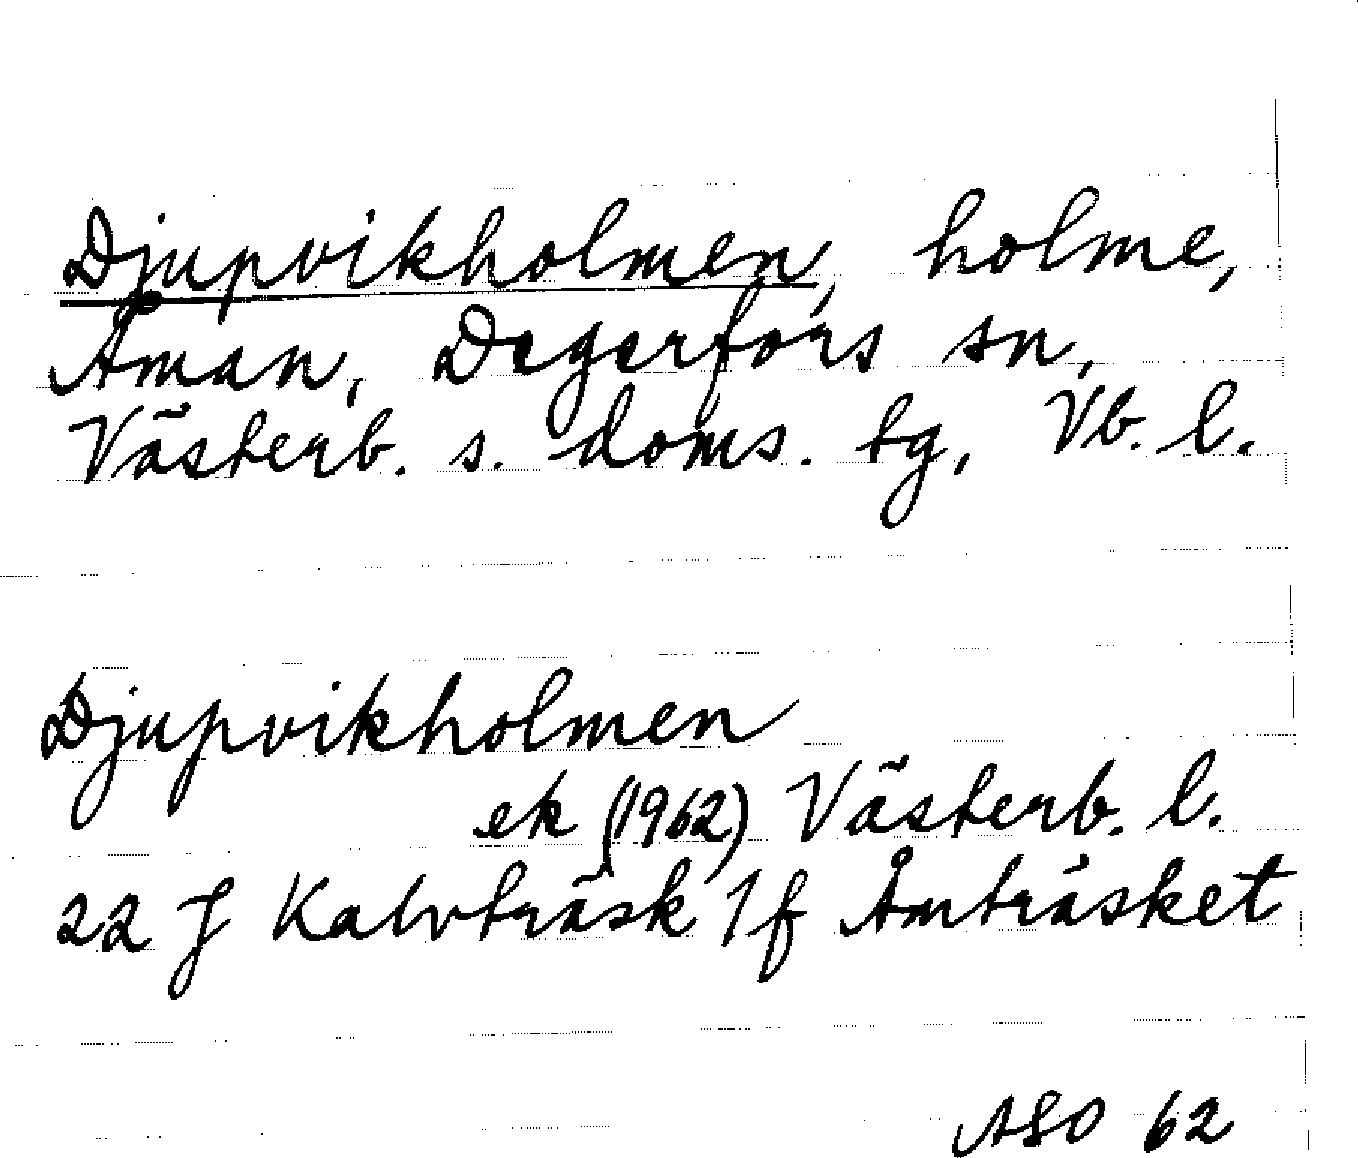 Djupvikholmen, holme,
Åman, Degerfors sn,
Västerb. s. doms. tg, Vb. l.
Djupvikholmen
ek (1962) Västerb. l.
22 J Kalvträsk 1f Åmträsket
ASO 62